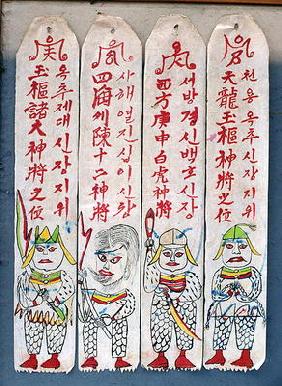 천용옥추신장지위
天龍玉樞神將之位
서방경신백호신장
西方庚申白虎神將
사해열진십이신장
四海列陳十二神將
옥추제대신장지위
玉樞諸大神將之位